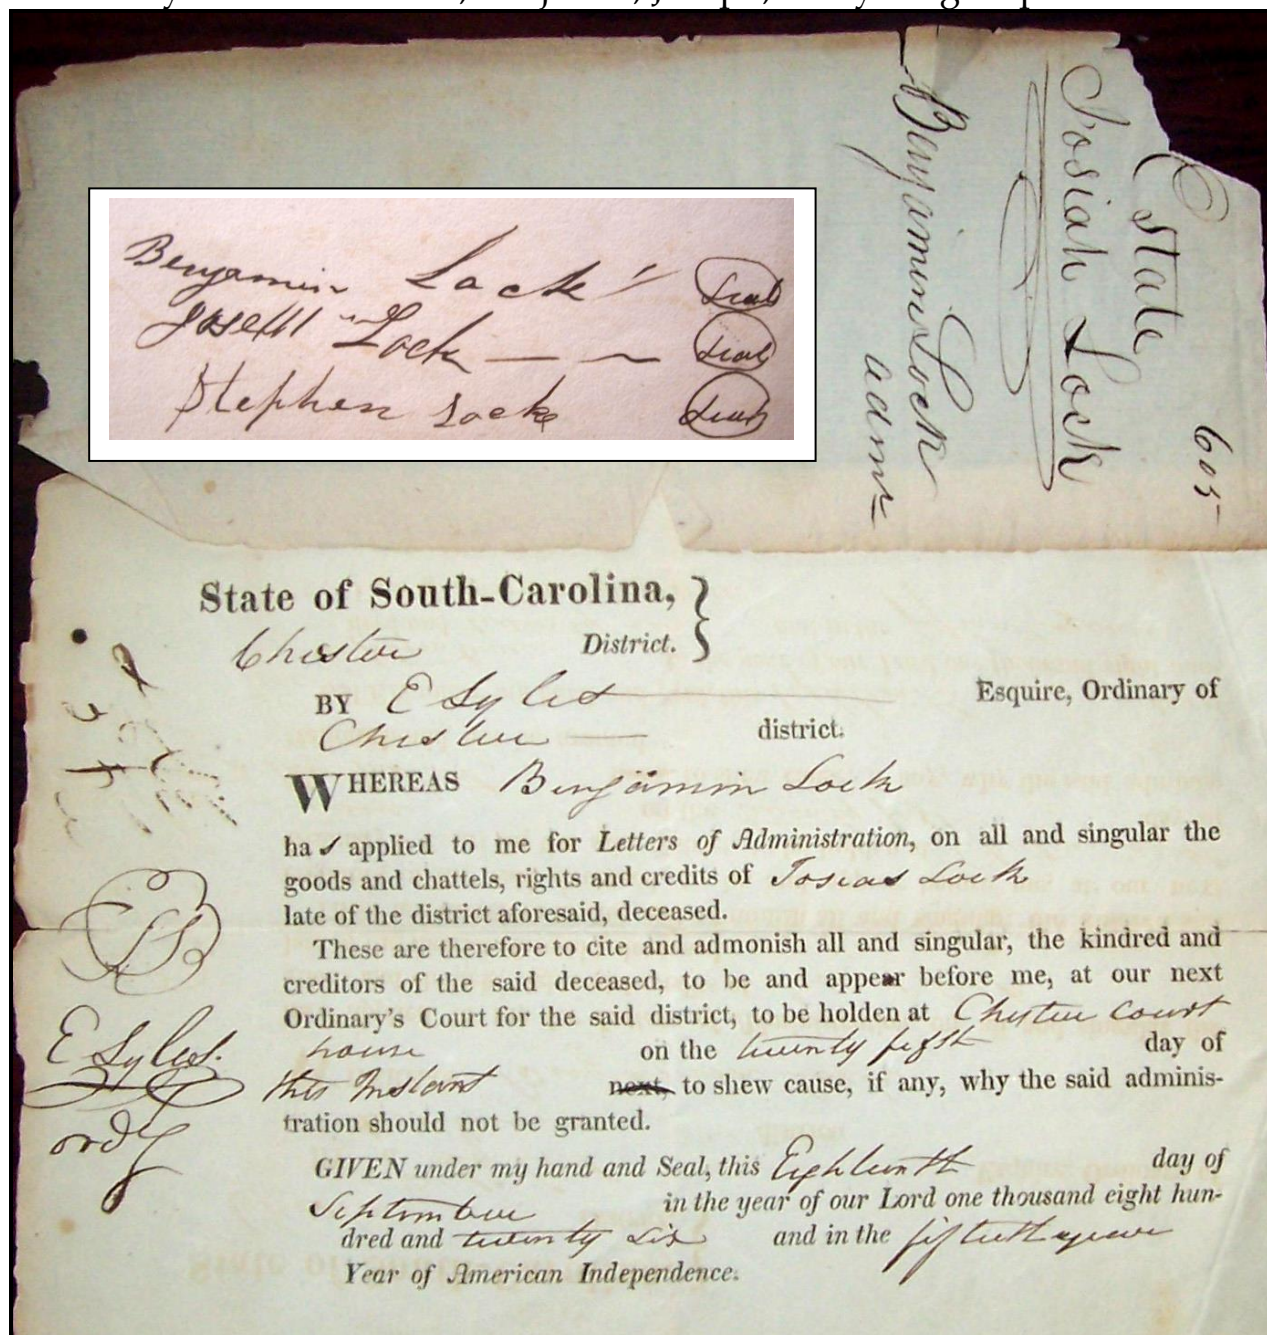 Estate
Josiah Lock
Benjamin Lock
admr
605
Benjamin Lock Seal
Joseph Lock Seal
Stephen Lock Seal
State of South-Carolina,
Chester District.
BY E Lyles Esquire, Ordinary of
Chester district.
WHEREAS Benjamin Lock
has applied to me for Letters of Administration, on all and singular the
goods and chattels, rights and credits of Josias Lock
late of the district aforesaid, deceased.
These are therefore to cite and admonish all and singular, the kindred and
creditors of the said deceased, to be and appear before me, at our next
Ordinary's Court for the said district, to be holden at Chester Court
house on the twenty fifth day of
this Instant next, to shew cause, if any, why the said adminis-
tration should not be granted.
GIVEN under my hand and Seal, this Eighteenth day of
September in the year of our Lord one thousand eight hun-
dred and twenty six and in the fiftieth year
Year of American Independence.
LS
E Lyles
ordy